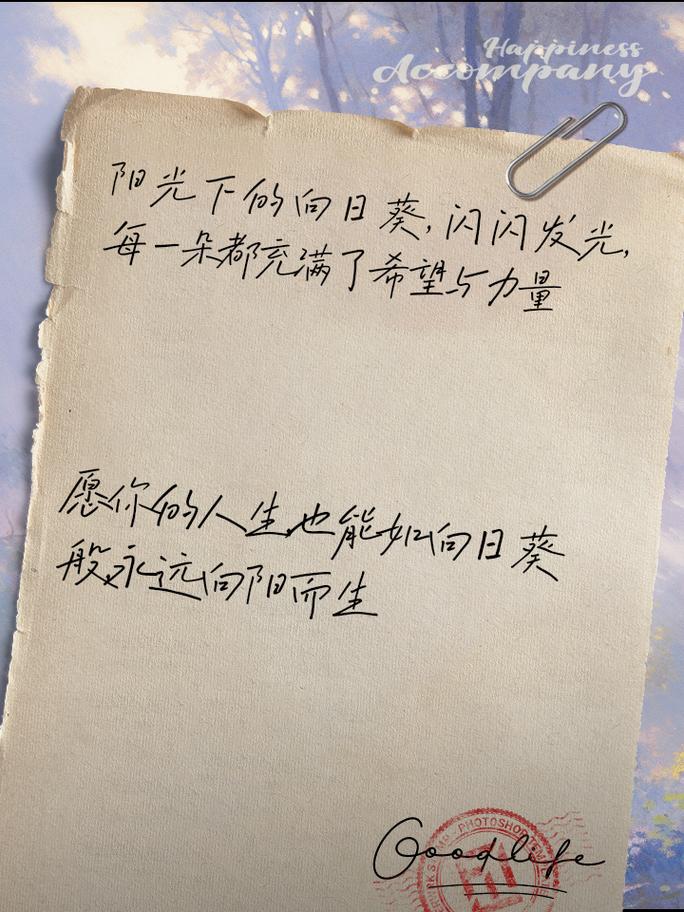 Happiness
Accompany
阳光下的向日葵,闪闪发光,
每一朵都充满了希望与力量
愿你的人生也能如向日葵
般永远向阳而生
PHOTOSHOP
Goodlife